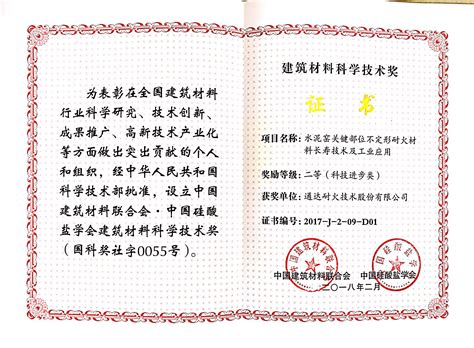 为表彰在全国建筑材料
行业科学研究、技术创新、
成果推广、高新技术产业化
等方面做出突出贡献的个人
和组织，经中华人民共和国
科学技术部批准，设立中国
建筑材料联合会·中国硅酸
盐学会建筑材料科学技术奖
（国科奖社字0055号）。
建筑材料科学技术奖
证书
项目名称：水泥窑关键部位不定形耐火材
料长寿技术及工业应用
奖励等级：二等（科技进步类）
获奖单位：通达耐火技术股份有限公司
证书编号：2017-J-2-09-D01
中国建筑材料联合会 中国硅酸盐学会
二〇一八年二月